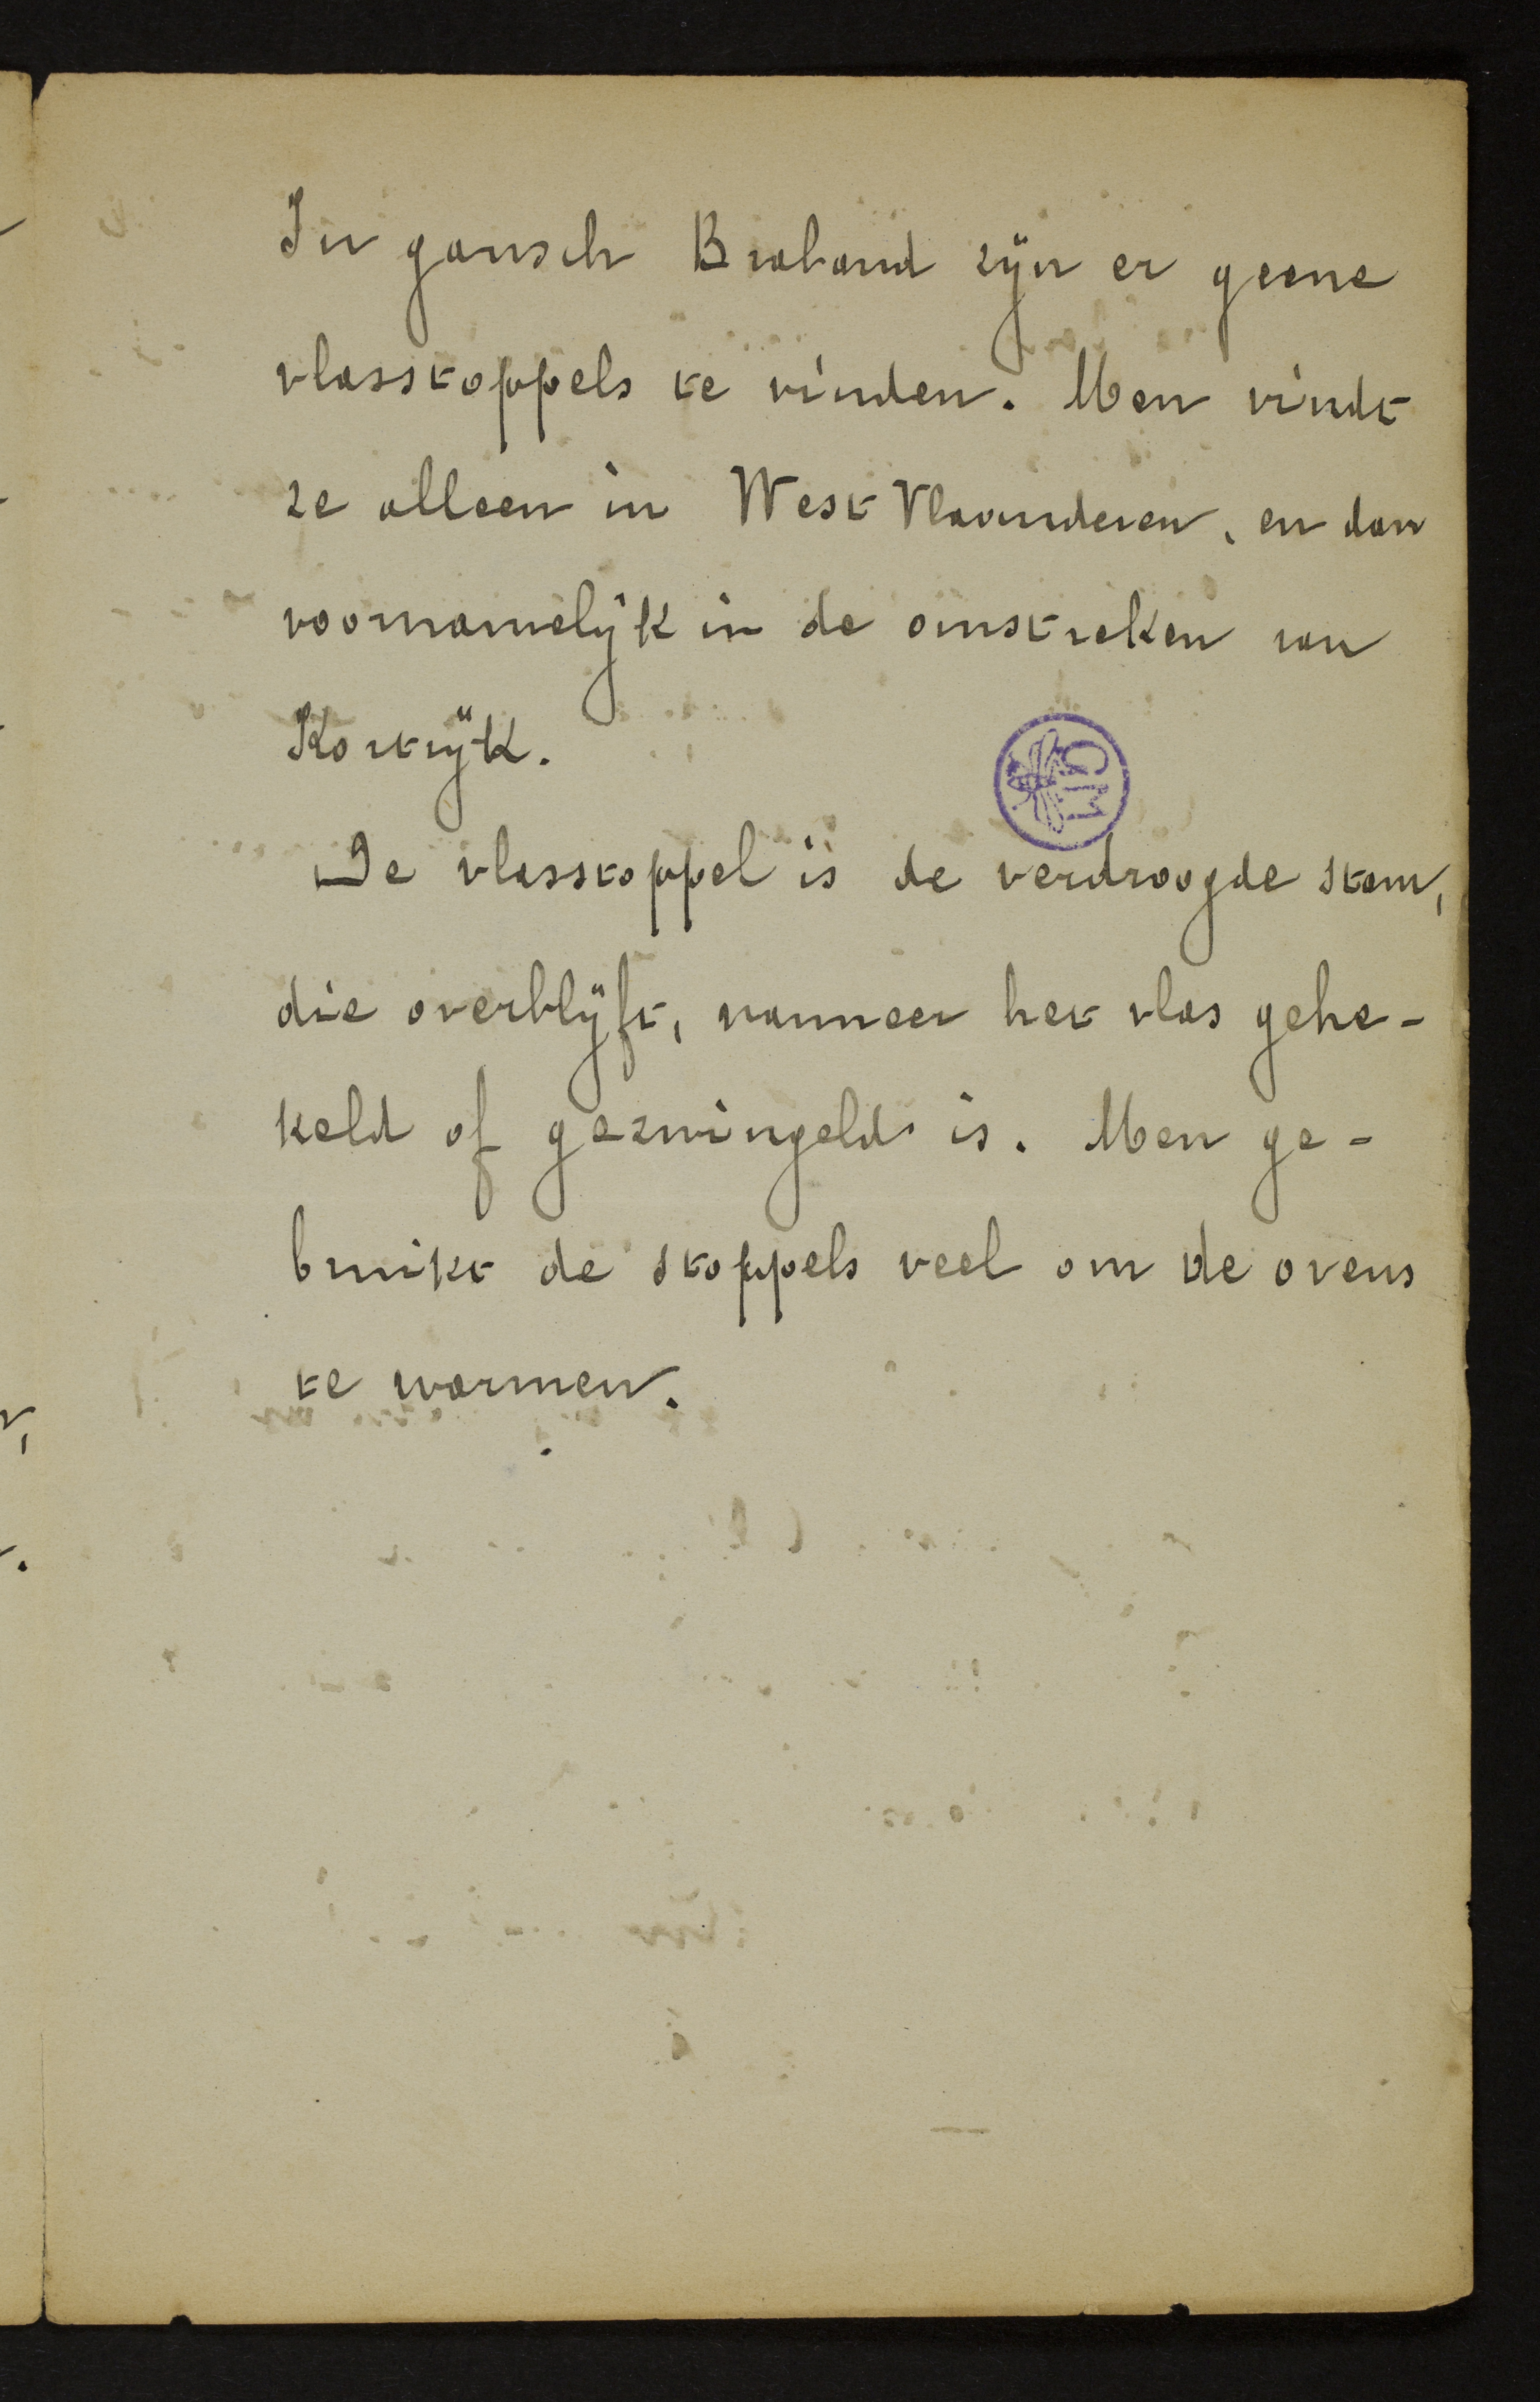 In gansch Braband zijn er geene
vlasstoppels te vinden. Men vindt
ze alleen in West Vlaanderen, en dan
voornamelijk in de omstreken van
Kortrijk.
De vlasstoppel is de verdroogde stam,
die overblijft, wanneer het vlas gehe-
keld of gezwingeld is. Men ge-
bruikt de stoppels veel om de ovens
te warmen.